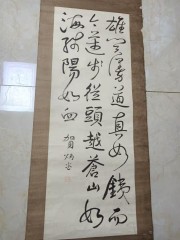 雄關漫道真如鐵而
今邁步從頭越蒼山如
海殘陽如血